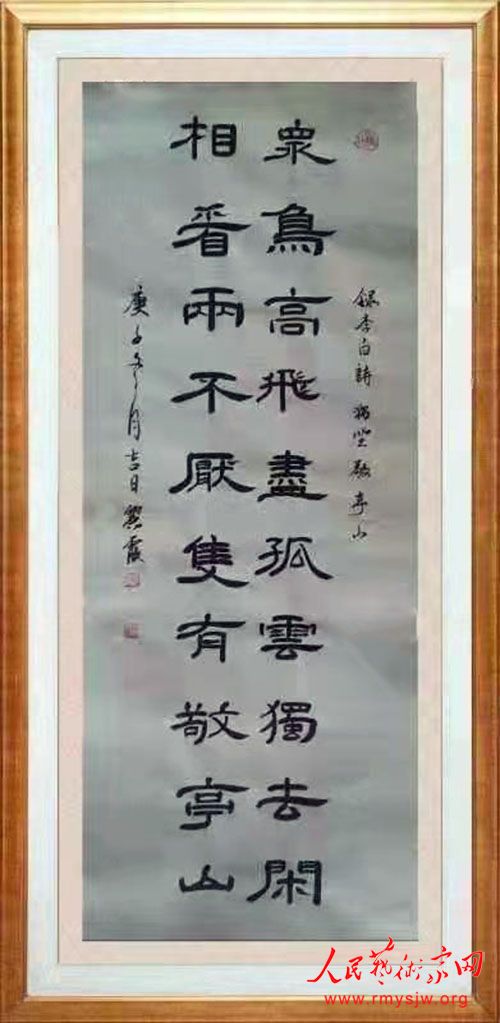 録李白詩 獨坐敬亭山
衆鳥高飛盡孤雲獨去閑
相看兩不厭隻有敬亭山
庚子冬月吉日霞
人民藝術家网
www.rmysjw.org